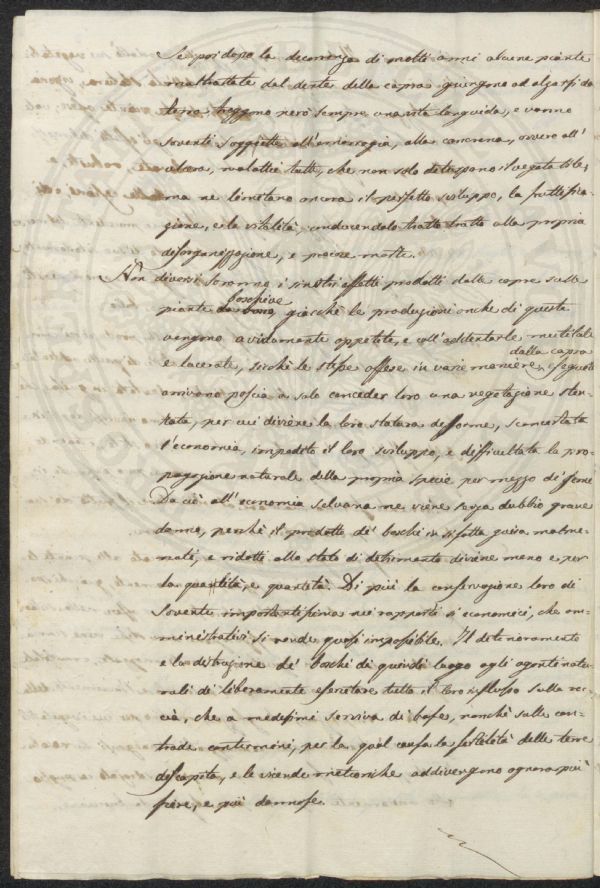 Se poi dopo la decorrenza di molti anni alcune piante
maltrattate dal dente della capra giungono ad alzarsi da
terra, traggono però sempre una vita languida, e vanno
soventi soggette all'emorragia, alla cancrena, ovvero all'
ulcera, malattie tutte, che non solo deturpano il vegetabile,
ma ne limitano ancora il perfetto sviluppo, la fruttifica-
zione, e la vitalità, conducendolo tratto tratto alla propria
disorganizzazione, e precoce morte.
Non diversi saranno i sinistri effetti prodotti dalle capre sulle
piante boschive, giacchè le produzioni anche di queste
vengono avidamente appetite, e coll'addentarle mutilate
e lacerate, sicchè le stesse offese in varie maniere dalla capra
arrivano poscia a solo conceder loro una vegetazione sten-
tata, per cui diviene la loro statura deforme, sconcertata
l'economia, impedito il loro sviluppo, e difficultata la pro-
pagazione naturale della propria specie per mezzo di seme
Da ciò all'economia selvana ne viene senza dubbio grave
danno, perchè il prodotto de' boschi in sifatta guisa malme-
nati, e ridotti allo stato di detrimento diviene meno e per
la quantità, e Di più la conservazione loro di
sovente importantissima nei rapporti sì economici, che am-
ministrativi si rende quasi impossibile. Il deterioramento
e la distruzione de' boschi dà quindi luogo agli agenti natu-
rali di liberamente esercitare tutto il loro influsso sulla roc-
cia, che a medesimi serviva di base, nonchè sulle con-
trade contermini, per la qual causa la fertilità delle terre
discapita, e le vicende meteoriche addivengono ognora più
fiere, e più dannose.